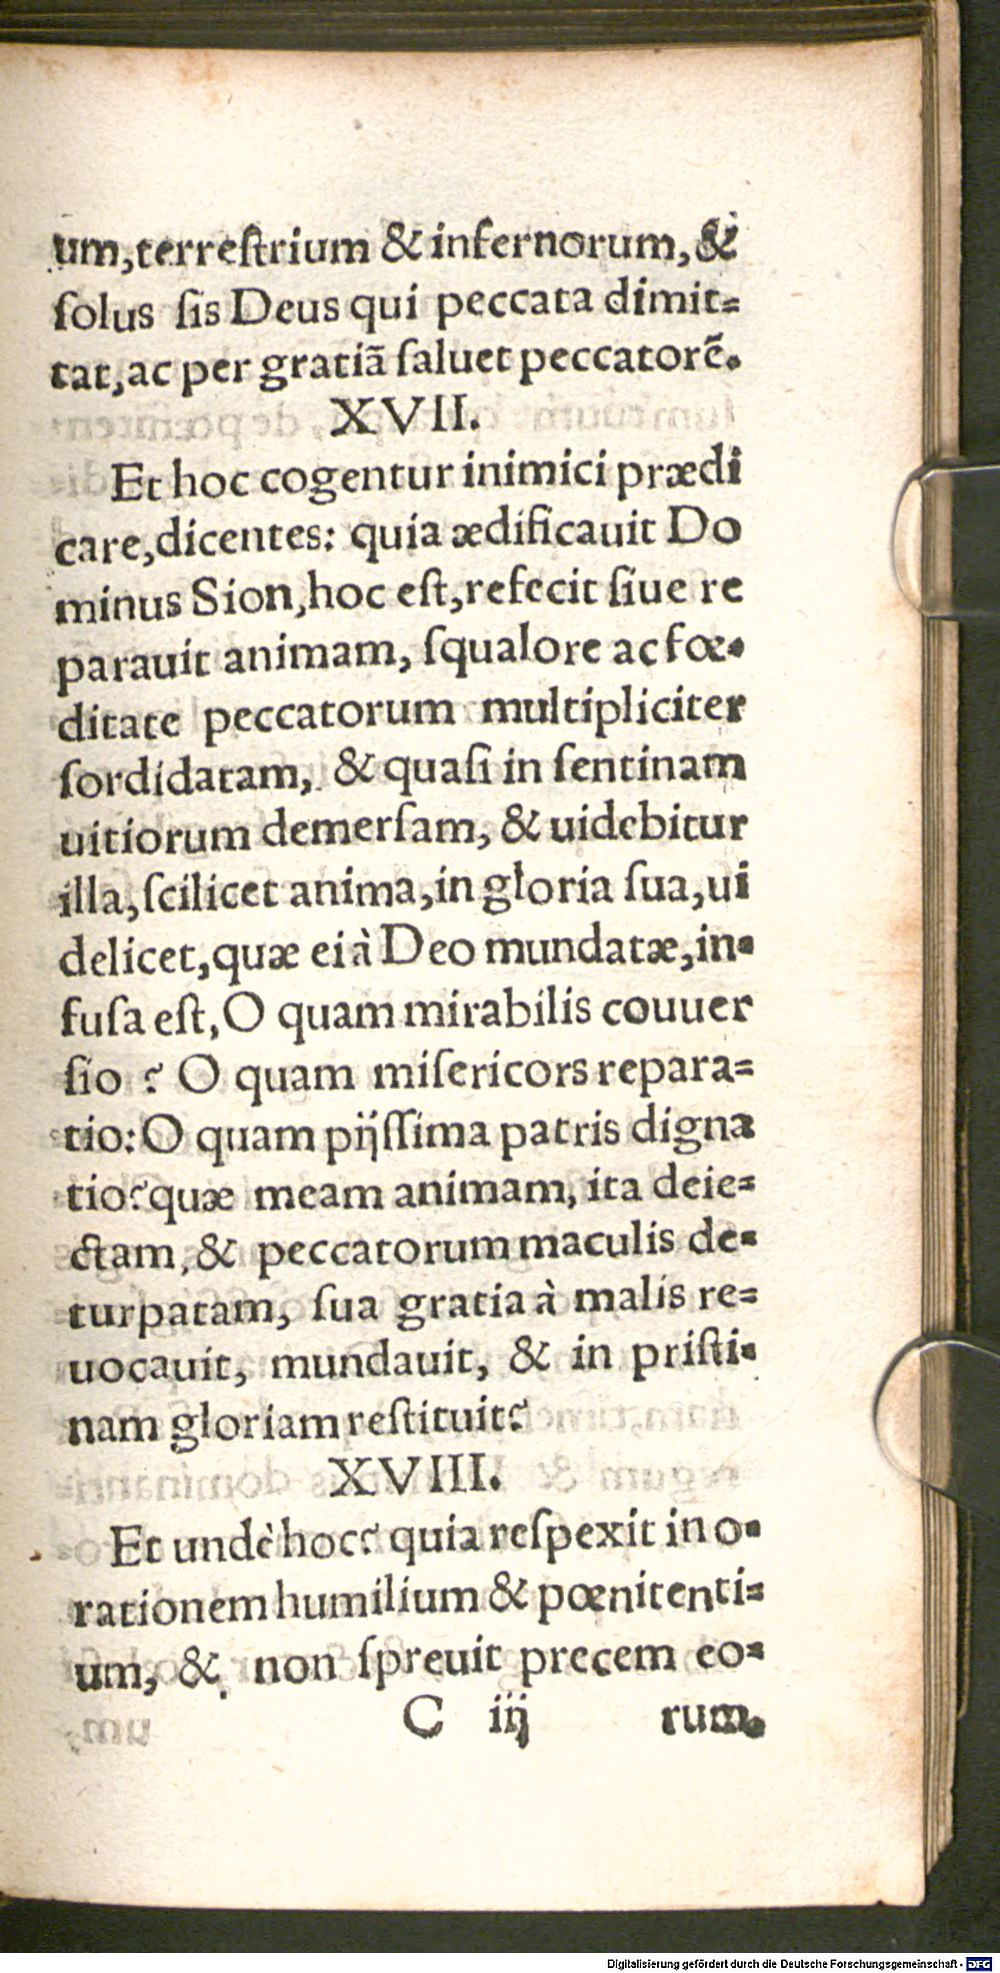 um,terreſtrium & infernorum,&
ſolus ſis Deus qui peccata dimit=
tat,ac per gratiã ſaluet peccatorẽ.
XVII.
Et hoc cogentur inimici prædi
care,dicentes: quia ædificauit Do
minus Sion,hoc eſt,refecit ſiue re
parauit animam, ſqualore ac fœ=
ditate peccatorum multipliciter
ſordidatam, & quaſi in ſentinam
uitiorum demerſam, & uidebitur
illa,ſcilicet anima,in gloria ſua,ui
delicet,quæ ei à Deo mundatæ,in=
fuſa eſt,O quam mirabilis couuer
ſio ? O quam miſericors repara=
tio:O quam pijſſima patris digna
tio?quæ meam animam, ita deie=
ctam,& peccatorum maculis de=
turpatam, ſua gratia à malis re=
uocauit, mundauit, & in priſti=
nam gloriam reſtituit?
XVIII.
Et undè hoc? quia reſpexit in o=
rationem humilium & pœnitenti=
um, & non ſpreuit precem eo=
C iij rum.
Digitalisierung gefördert durch die Deutsche Forschungsgemeinschaft - DFG